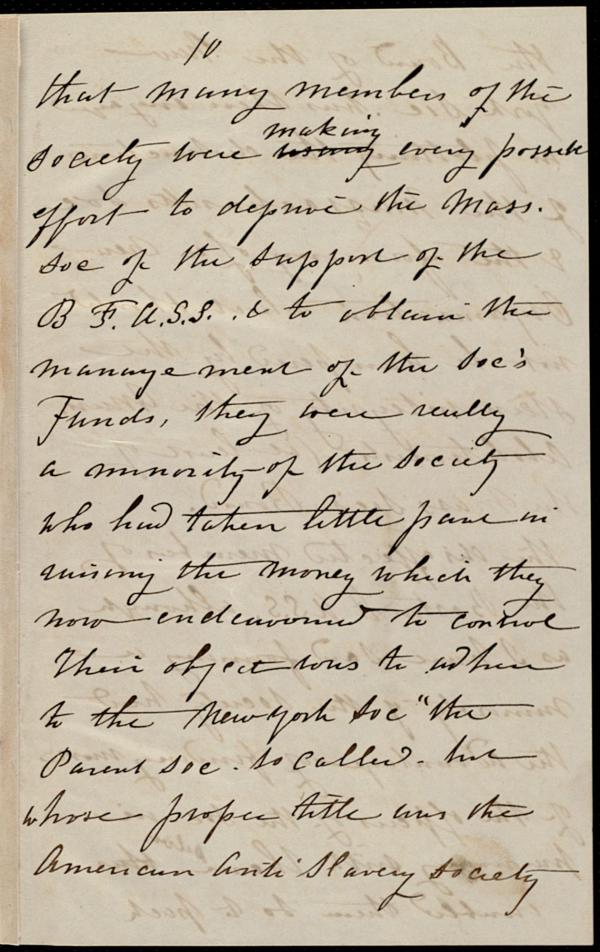 10
that many members of the
making
society were using every possible
effort to deprive the Mass.
Soc of the support of the
B F. A.S.S. & to obtain the
manage ment of the Soc's
Funds, they were really
a minority of the Society
who had taken little part in
raising the money which they
now endeavoured to control
Their object was to adhere
to the New York Soc "the
Parent Soc. so called. but
whose proper title was the
American Anti Slavery Society